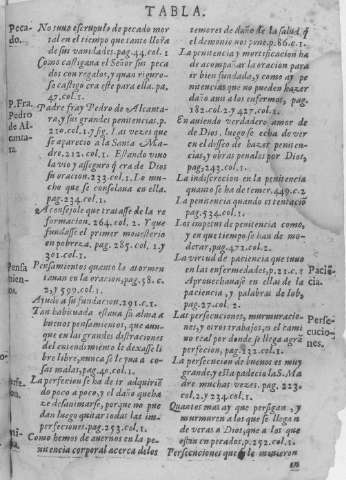 TABLA.
Pecado.
No tuuo escrupulo de pecado mor
tal en el tiempo que tanto lloña
de sus vanidades. pag. 44. col. 2
Como castigaua el Señor sus peca
dos con regalos, y quan riguro-
so castigo era este para ella. pa.
47. col. 1
P. Fra. Pedro de Alcantara
Padre fray Pedro de Alcanta-
ra, y sus grandes penitencias. p.
210. col. 1. y sig. Las vezes que
se aparecio a la Santa Ma-
dre, 212. col. 1. Estando viuo
la vio y asseguró era de Dios
su oracion. 233. col. 1. Lo mu-
cho que se consolaua en ella.
pag. 234. col. 1.
Aconsejole que tratasse de la re
formacion. 264. col. 2. Y que
fundasse el primer monasterio
en pobreza. pag. 285. col. 1. y
301. col. 1
Pensamientos.
Pensamientos quanto la atormen
tauan en la oracion, pag. 58. c.
2, y 599. col. 1.
Ayudò a su fundacion. 291. c. 1.
Tan habituada estaua su alma a
buenos pensamientos, que aun-
que en las grandes distraciones
del entendimiento le dexasse li
bre libre, nunca se le yua a co-
sas malas, pag. 40. col. 1.
La perfecion se ha de ir adquiriẽ
do poco a poco, y el daño que ha
ze desanimarse, por que no pue
dan luego quitar todas las im-
perfeciones. pag. 253. col. 1.
Como hemos de auernos en la pe
nitencia corporal acerca de los
temores de daño de la salud q̃
el demonio nos pone. p. 86. c. 1.
La penitencia y mortificacion ha
de acompañar la oracion para
ir bien fundado, y como ay pe
nitencias que no pueden hazer
daño aun a los enfermos, pag.
182. col. 2 y 427. col. 1.
En auiendo verdadero amor de
de Dios, luego se echa de ver
en el desseo de hazer peniten-
cias, y obras penales por Dios,
pag. 243. col. 1.
La indiscrecion en la penitencia
quanto se ha de temer. 449. c. 2
La penitencia quando es tentaciõ
pag. 534. col. 1.
Los impetus de penitencia como,
y en que tiempo se han de mo-
derar, pag. 473. col. 2.
Paciencia.
La virtud de paciencia que tuuo
en las enfermedades, p. 21. c. 2
Aprouechauase en ellas de la
paciencia, y palabras de Iob,
pag. 27. col. 2.
Persecuciones.
Las persecuciones, murmuracio-
nes, y otros trabajos, en el cami
no real por donde se llega a grã
perfecion, pag. 232. col. 1.
La persecucion de buenos es muy
grande, y esta padecio la S. Ma
dre muchas vezes. pag. 223.
col. 2, y 234. col. 1.
Quantos mas ay que persigan, y
murmuren a los que se llegan
de veras a Dios, que a los que
estan empeçados, p. 252. col. 1.
Persecuciones que le mouieron